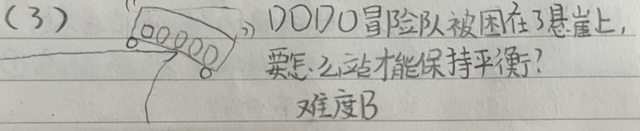 (3) DODO冒险队被困在了悬崖上,
要怎么站才能保持平衡?
难度B